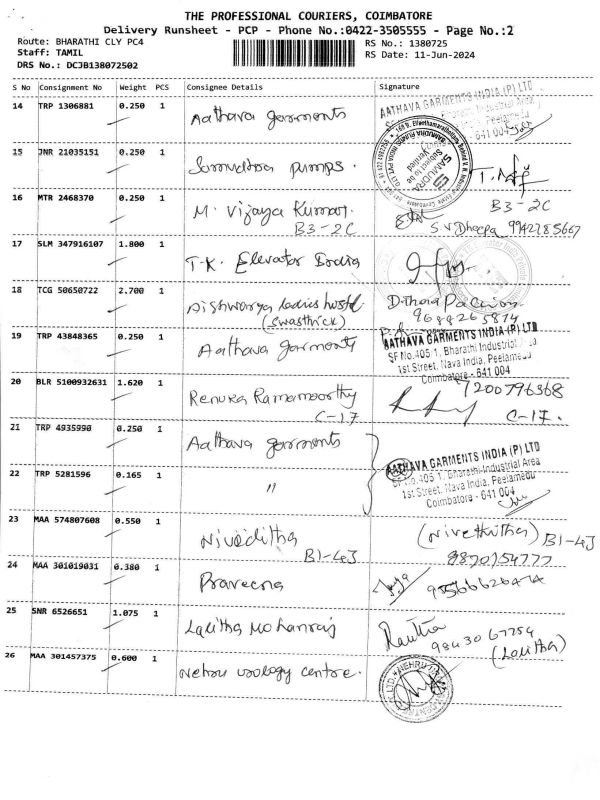 THE PROFESSIONAL COURIERS, COIMBATORE
Delivery Runsheet - PCP - Phone No.:0422-3505555 - Page No.:2
Route: BHARATHI CLY PC4
RS No.: 1380725
Staff: TAMIL
RS Date: 11-Jun-2024
DRS No.: DCJB138072502
S No Consignment No Weight PCS Consignee Details Signature
14 TRP 1306881 0.250 1 Aathava garments
AATHAVA GARMENTS INDIA (P) LTD
Industrial Area
Peelamedu
641 004
15 JNR 21035151 0.250 1 Samudhra pumps.
SAMUDRA
Subject to be
Verified
16 MTR 2468370 0.250 1 M. Vijaya Kumar. B3-2C
B3-2C
9942285667
17 SLM 347916107 1.800 1 T.K. Elevator India
18 TCG 50650722 2.700 1 Aishwarya ladies hostel
(Swasthick)
9688265874
19 TRP 43848365 0.250 1 Aathava garments
AATHAVA GARMENTS INDIA (P) LTD
SF No.405 1, Bharathi Industrial
1st Street, Nava India, Peelamedu
Coimbatore - 641 004
20 BLR 5100932631 1.620 1 Renuka Ramamoorthy
C-17
7200796368
C-17.
21 TRP 4935990 0.250 1 Aathava garments
AATHAVA GARMENTS INDIA (P) LTD
22 TRP 5281596 0.165 1 "
SF No.405 1, Bharathi Industrial Area
1st Street, Nava India, Peelamedu
Coimbatore - 641 004
23 MAA 574807608 0.550 1 Niveditha
B1-4J
(Nivethitha) B1-4J
9870154777
24 MAA 301019031 0.380 1 Praveena
25 SNR 6526651 1.075 1 Lalitha Mohanraj
98430 67754
(Lalitha)
26 MAA 301457375 0.600 1 Nehru urology centre.
NEHRU